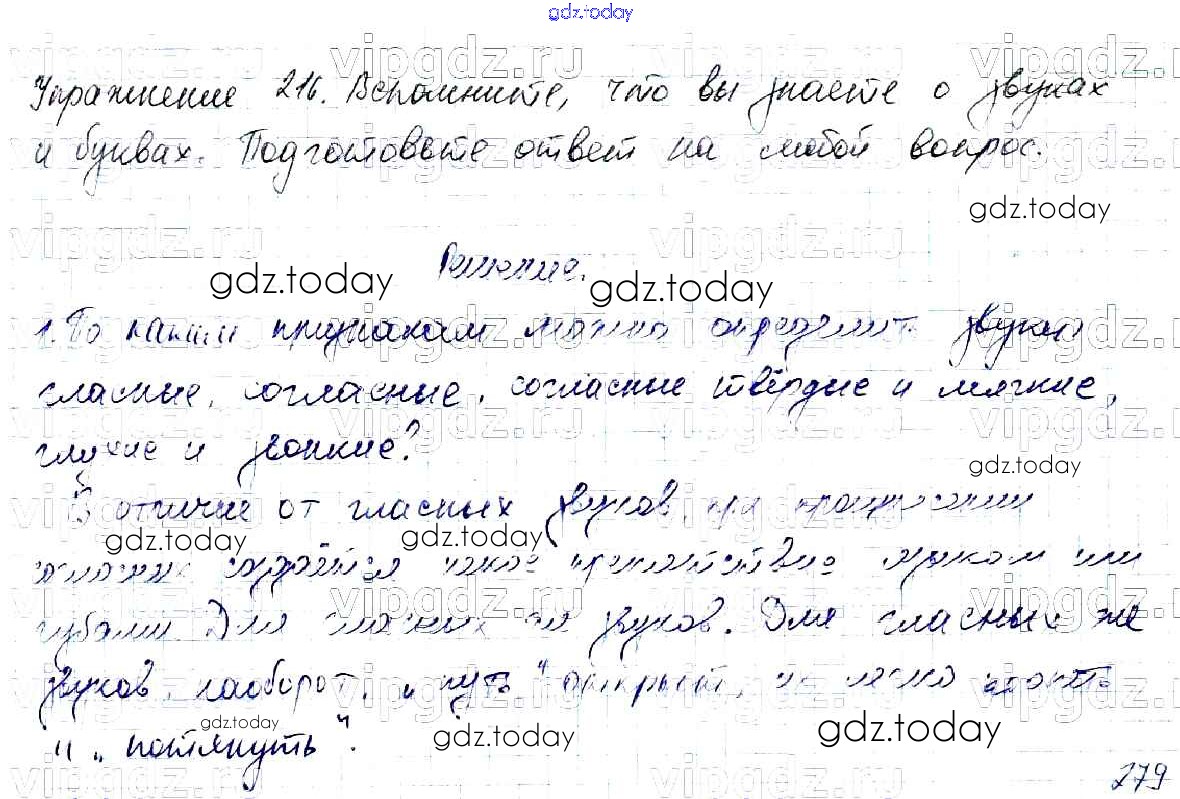 gdz.today
Упражнение 216. Вспомните, что вы знаете о звуках
и буквах. Подготовьте ответ на любой вопрос.
gdz.today
Решение.
gdz.today gdz.today
1. По каким признакам можно определить звуки
гласные, согласные, согласные твёрдые и мягкие,
глухие и звонкие?
gdz.today
В отличие от гласных звуков, при произнесении
gdz.today gdz.today
создаётся препятствие языком или
губами Для звуков. Для гласных же
звуков, наоборот, „путь" открыт, их легко
gdz.today gdz.today gdz.today
и „потянуть".
279